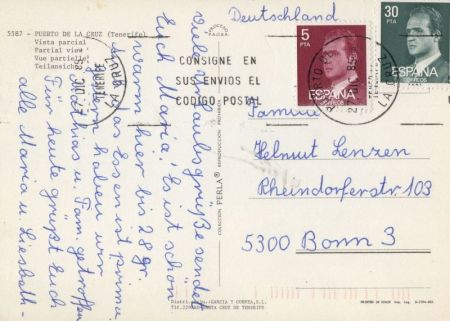 5587 - PUERTO DE LA CRUZ (Tenerife)
Vista parcial
Partial view
Vue partielle
Teilansicht
Deutschland
CONSIGNE EN
SUS ENVIOS EL
CODIGO POSTAL
5
PTA
ESPAÑA
CORREOS
30
PTA
ESPAÑA
CORREOS
Viele Urlaubsgrüße sendet
Euch Maria! Es ist schön
warm hier bis 28 gr.
das Essen ist prima
haben wir
u. Fam. getroffen
Für heute grüßt Euch
alle Maria u. Liesbeth
COLECCION PERLA REPRODUCCION PROHIBIDA
Familie
Helmut Lenzen
Rheindorferstr 103
5300 Bonn 3
Distrib. GARCIA Y CORREA, S.L.
SANTA CRUZ DE TENERIFE
PRINTED IN SPAIN